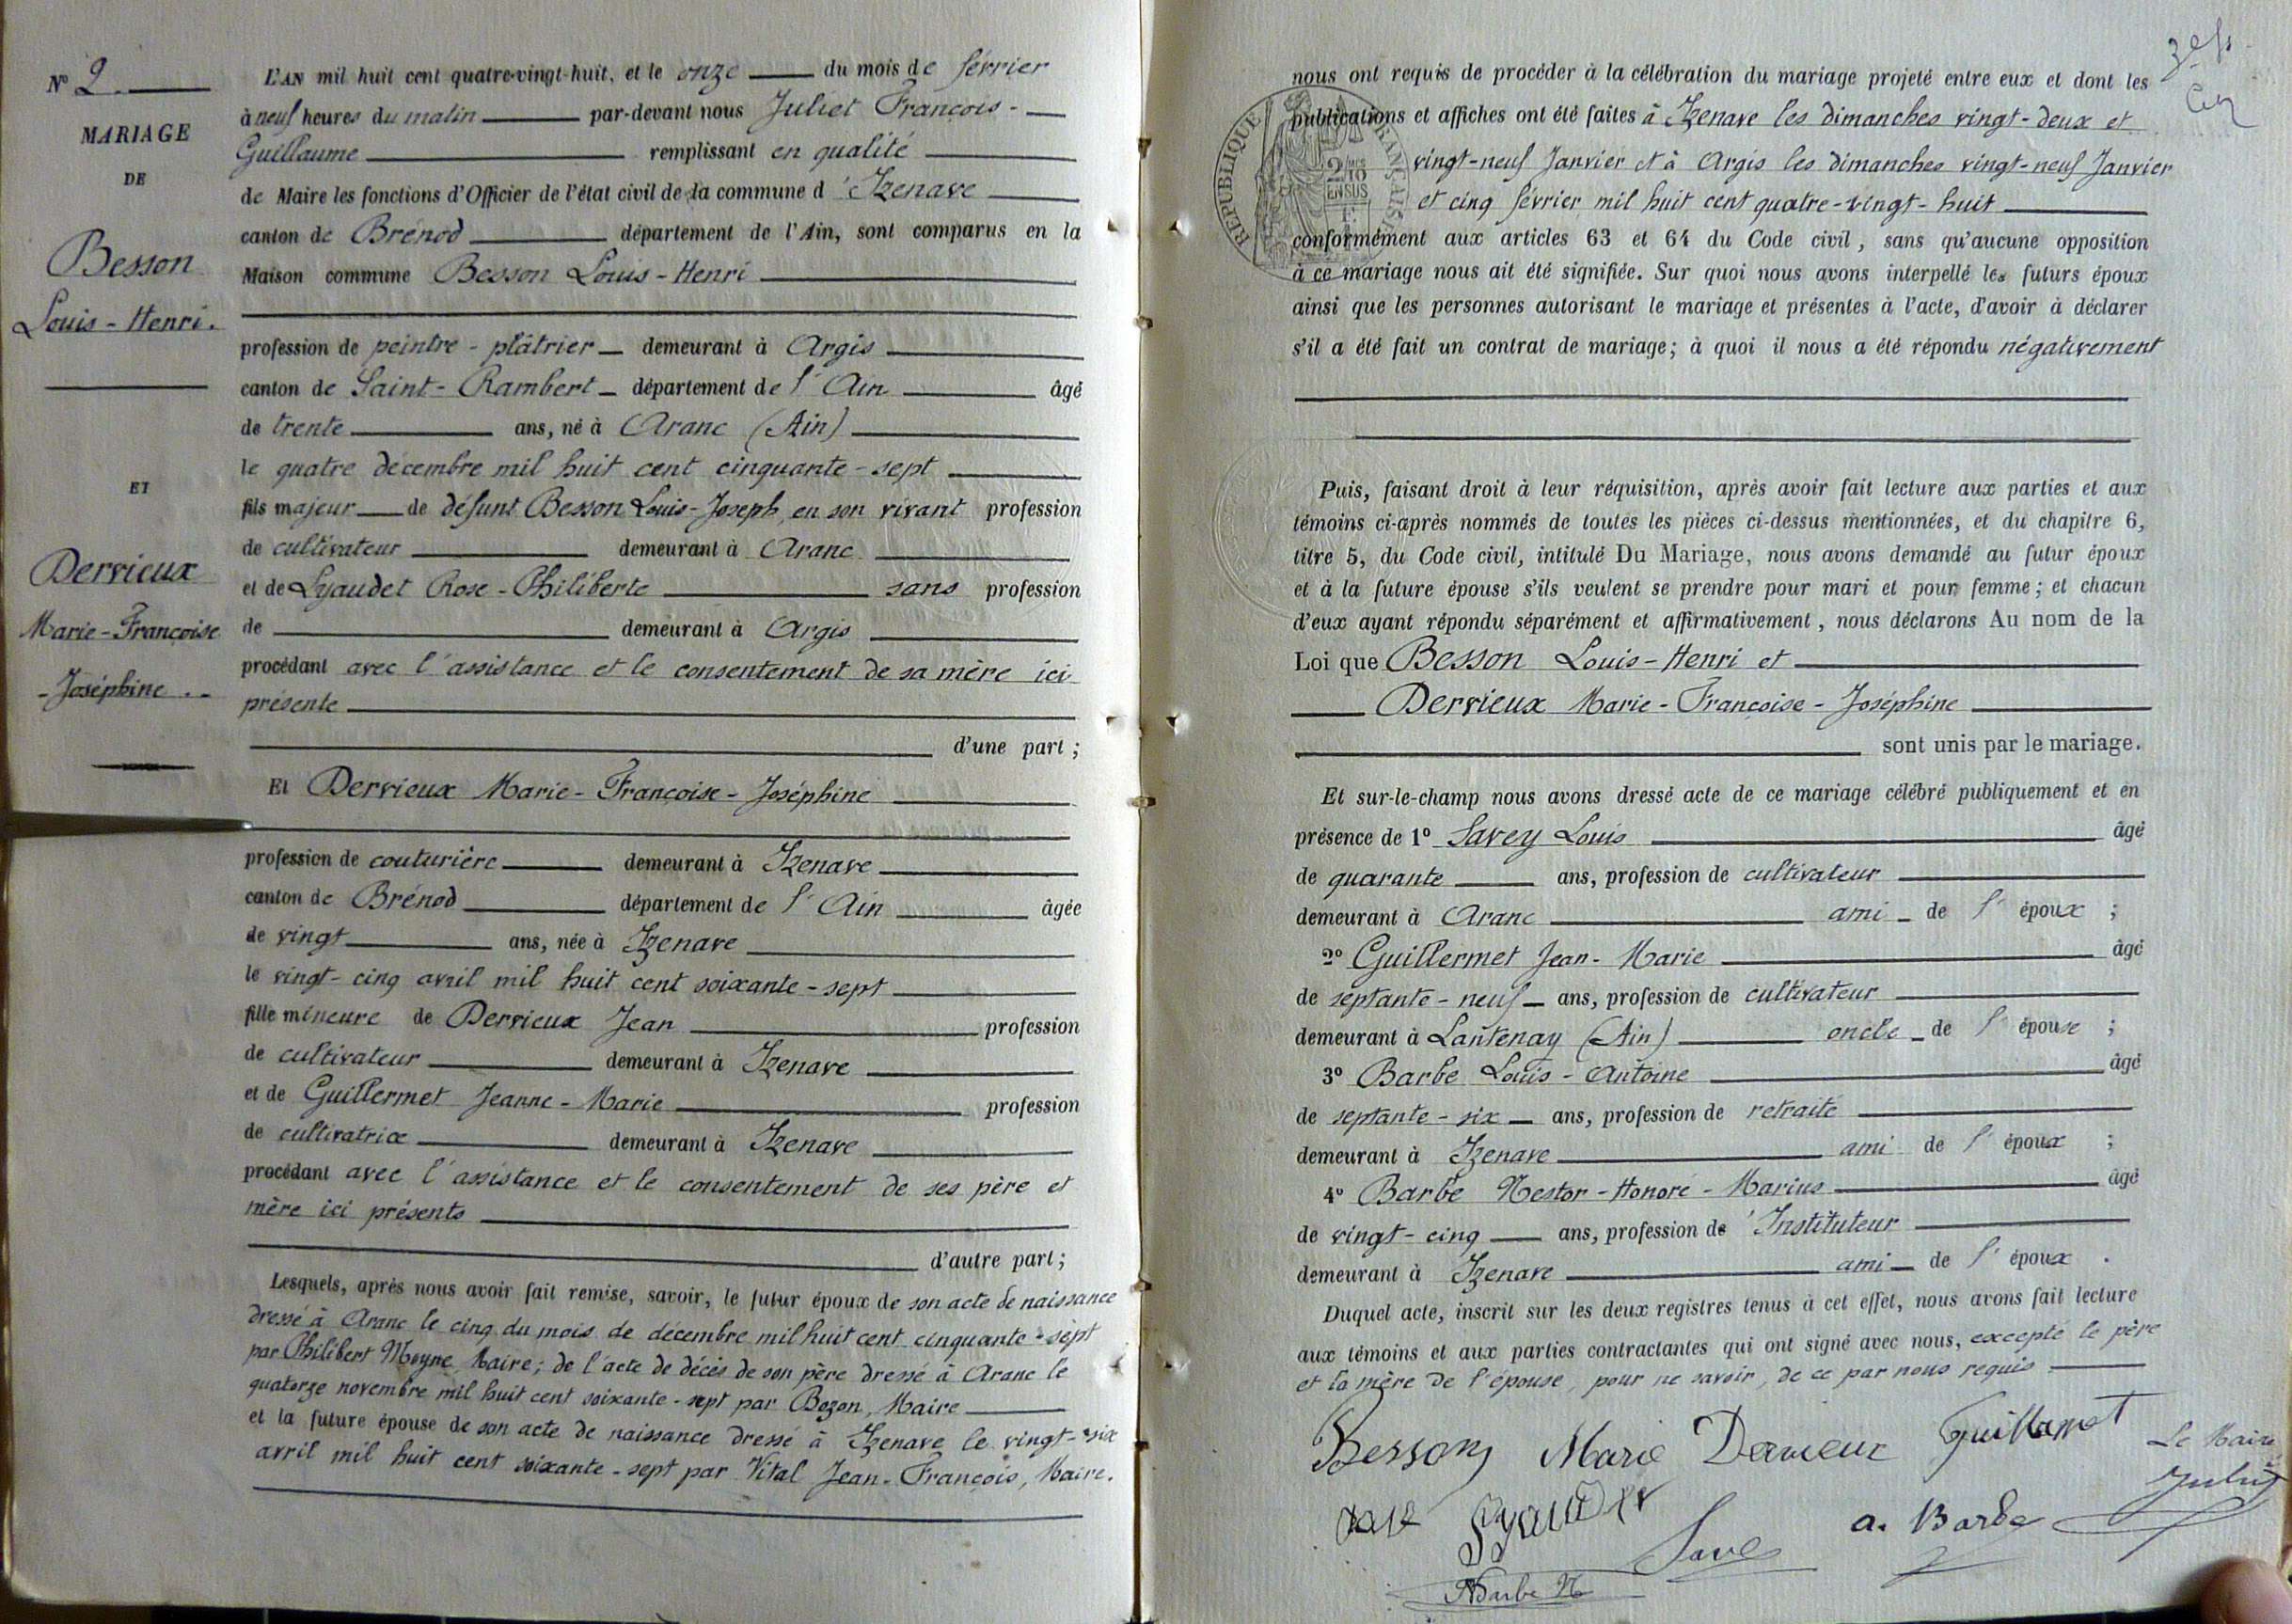 N° 2.
MARIAGE
DE
Besson
Louis-Henri.
ET
Dervieux
Marie-Françoise
-Joséphine.
L'AN mil huit cent quatre-vingt-huit, et le onze du mois de février
à neuf heures du matin par-devant nous Juliet François-
Guillaume remplissant en qualité
de Maire les fonctions d'Officier de l'état civil de la commune d'Izenave
canton de Brénod département de l'Ain, sont comparus en la
Maison commune Besson Louis-Henri
profession de peintre-plâtrier demeurant à Argis
canton de Saint-Rambert département de l'Ain âgé
de trente ans, né à Aranc (Ain)
le quatre décembre mil huit cent cinquante-sept
fils majeur de défunt Besson Louis-Joseph, en son vivant profession
de cultivateur demeurant à Aranc
et de Lyaudet Rose-Philiberte sans profession
de demeurant à Argis
procédant avec l'assistance et le consentement de sa mère ici
présente
d'une part ;
Et Dervieux Marie-Françoise-Joséphine
profession de couturière demeurant à Izenave
canton de Brénod département de l'Ain âgée
de vingt ans, née à Izenave
le vingt-cinq avril mil huit cent soixante-sept
fille mineure de Dervieux Jean profession
de cultivateur demeurant à Izenave
et de Guillermet Jeanne-Marie profession
de cultivatrice demeurant à Izenave
procédant avec l'assistance et le consentement de ses père et
mère ici présents
d'autre part ;
Lesquels, après nous avoir fait remise, savoir, le futur époux de son acte de naissance
dressé à Aranc le cinq du mois de décembre mil huit cent cinquante-sept
par Philibert Moyne Maire; de l'acte de décès de son père dressé à Aranc le
quatorze novembre mil huit cent soixante-sept par Bozon, Maire
et la future épouse de son acte de naissance dressé à Izenave le vingt-six
avril mil huit cent soixante-sept par Vital Jean-François, Maire.
nous ont requis de procéder à la célébration du mariage projeté entre eux et dont les
publications et affiches ont été faites à Izenave les dimanches vingt-deux et
vingt-neuf Janvier et à Argis les dimanches vingt-neuf Janvier
et cinq février mil huit cent quatre-vingt-huit
RÉPUBLIQUE FRANÇAISE
2/10 EN SUS
conformément aux articles 63 et 64 du Code civil, sans qu'aucune opposition
à ce mariage nous ait été signifiée. Sur quoi nous avons interpellé les futurs époux
ainsi que les personnes autorisant le mariage et présentes à l'acte, d'avoir à déclarer
s'il a été fait un contrat de mariage; à quoi il nous a été répondu négativement
Puis, faisant droit à leur réquisition, après avoir fait lecture aux parties et aux
témoins ci-après nommés de toutes les pièces ci-dessus mentionnées, et du chapitre 6,
titre 5, du Code civil, intitulé Du Mariage, nous avons demandé au futur époux
et à la future épouse s'ils veulent se prendre pour mari et pour femme; et chacun
d'eux ayant répondu séparément et affirmativement, nous déclarons Au nom de la
Loi que Besson Louis-Henri et
Dervieux Marie-Françoise-Joséphine
sont unis par le mariage.
Et sur-le-champ nous avons dressé acte de ce mariage célébré publiquement et en
présence de 1° Savey Louis âgé
de quarante ans, profession de cultivateur
demeurant à Aranc ami de l'époux ;
2° Guillermet Jean-Marie âgé
de septante-neuf ans, profession de cultivateur
demeurant à Lantenay (Ain) oncle de l'épouse ;
3° Barbe Louis-Antoine âgé
de septante-six ans, profession de retraité
demeurant à Izenave ami de l'époux ;
4° Barbe Nestor-Honoré-Marius âgé
de vingt-cinq ans, profession de Instituteur
demeurant à Izenave ami de l'époux.
Duquel acte, inscrit sur les deux registres tenus à cet effet, nous avons fait lecture
aux témoins et aux parties contractantes qui ont signé avec nous, excepté le père
et la mère de l'épouse, pour ne savoir, de ce par nous requis
Besson Marie Dervieux Guillermet Le Maire
Juliet
Lyaudet
Savey a. Barbe
Barbe N